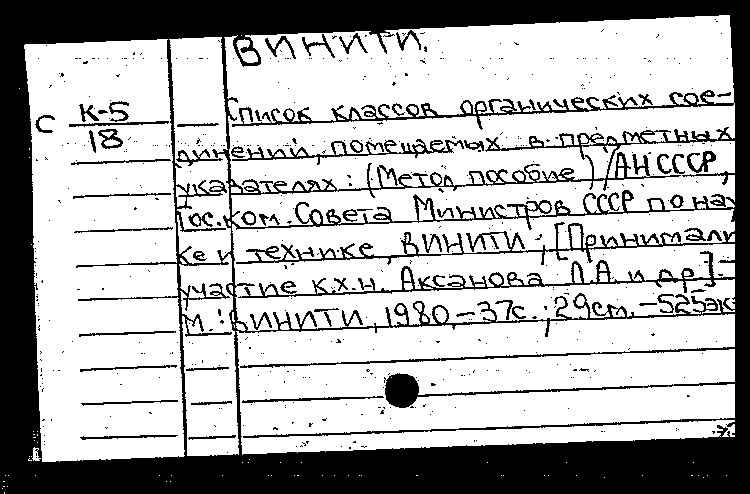 ВИНИТИ.
С К-5 Список классов органических сое-
18 динений, помещаемых в предметных
указателях: (Метод. пособие) / АН СССР,
Гос. ком. Совета Министров СССР по нау
ке и технике, ВИНИТИ; [Принимали
участие к.х.н. Аксанова Л.А. и др.]. –
М.: ВИНИТИ, 1980. – 37с.; 29см. – 525эк